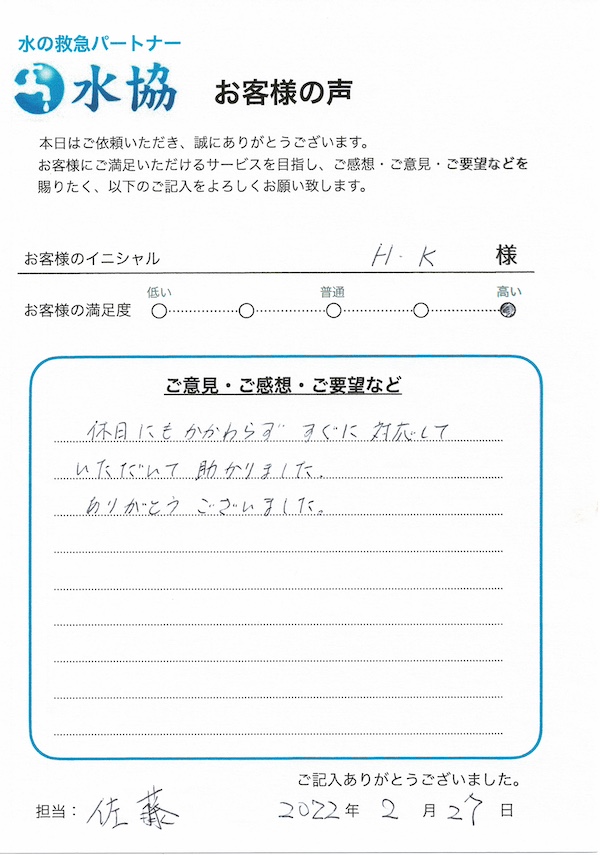 水の救急パートナー
水協
お客様の声
本日はご依頼いただき、誠にありがとうございます。
お客様にご満足いただけるサービスを目指し、ご感想・ご意見・ご要望などを
賜りたく、以下のご記入をよろしくお願い致します。
お客様のイニシャル H・K 様
低い 普通 高い
お客様の満足度
ご意見・ご感想・ご要望など
休日にもかかわらず すぐに 対応して
いただいて 助かりました。
ありがとう ございました。
ご記入ありがとうございました。
担当： 佐藤 2022年 2 月 27 日